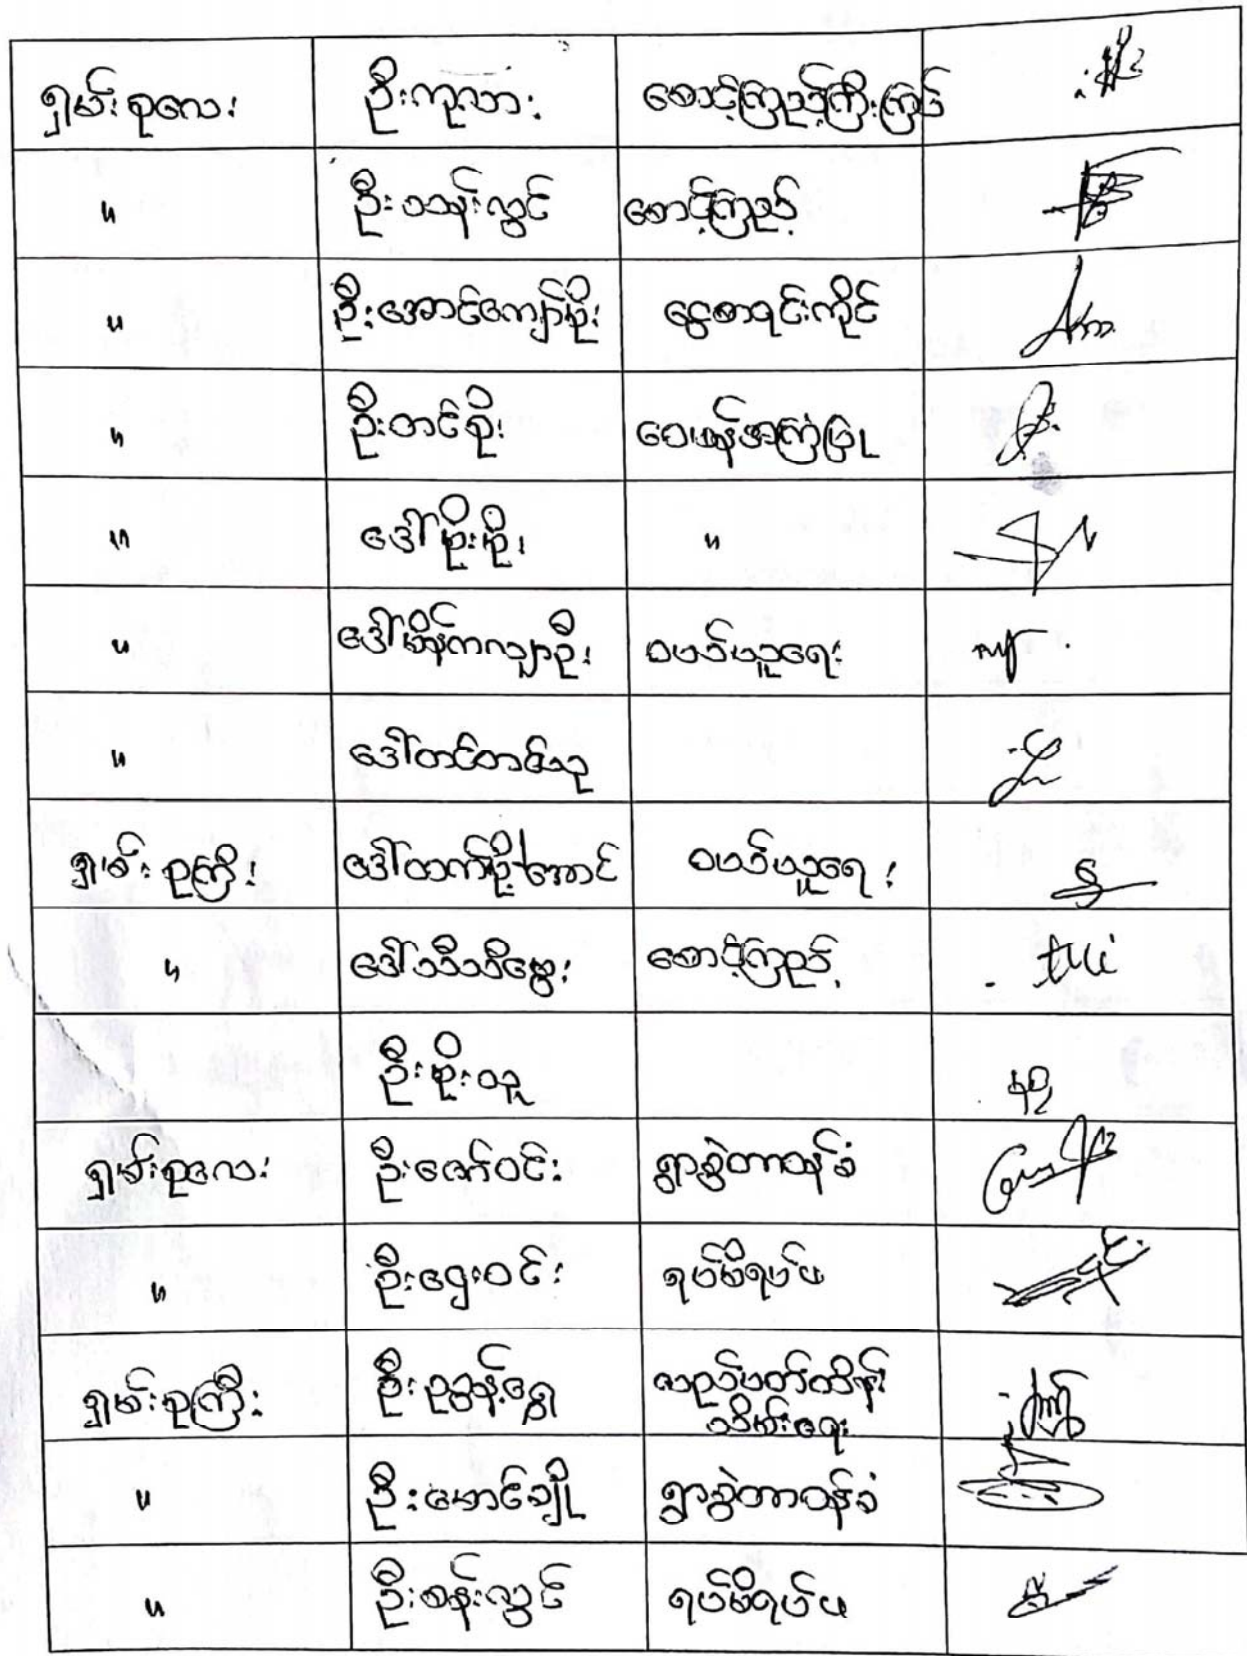 ရှမ်းစုလေး ဦးကုလား စောင့်ကြည့်ကြီးကြပ်
" ဦးသန်းလွင် စောင့်ကြည့်
" ဦးအောင်ကျော်စိုး ငွေစာရင်းကိုင်
" ဦးတင်စိုး ဝေဖန်အကြံပြု
" ဒေါ်စိုးစိုး "
" ဒေါ်အိန္ဒကလျာဦး ဝယ်ယူရေး
" ဒေါ်တင်တင်သု
ရှမ်းစုကြီး ဒေါ်တက်စို့အောင် ဝယ်ယူရေး
" ဒေါ်သီသီမွှေး စောင့်ကြည့်
ဦးစိုးသူ
ရှမ်းစုလေး ဦးဇော်ဝင်း ရွာခွဲတာဝန်ခံ
" ဦးဌေးဝင်း ရပ်မိရပ်ဖ
ရှမ်းစုကြီး ဦးညွန့်ရွှေ လည်ပတ်ထိန်း
သိမ်းရေး
" ဦးမောင်ချို ရွာခွဲတာဝန်ခံ
" ဦးစန်းလွင် ရပ်မိရပ်ဖ